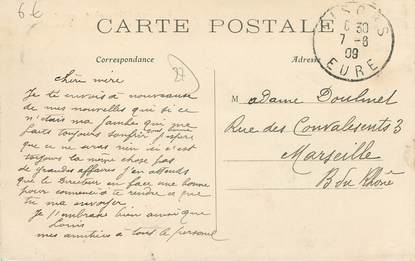 66
CARTE POSTALE
Correspondance
Adresse
27
6 30
7 - 6
09
EURE
Chère mère
Je t'envois à nouveause
de mes nouvelles qui si ce
n'étais ma jambe qui me
faits toujours souffrir
j'espère
que ce ne seras rien si c'est
toujours la même chose pas
de grandes affaires J'en attends
que le Directeur en face une bonne
pour te rendre ce que
tu ma envoyer
Je t'embrasse bien ainsi que
Louis
mes amitiées à tous
Madame Doulmet
Rue des Convalesents 3
Marseille
B du Rhône